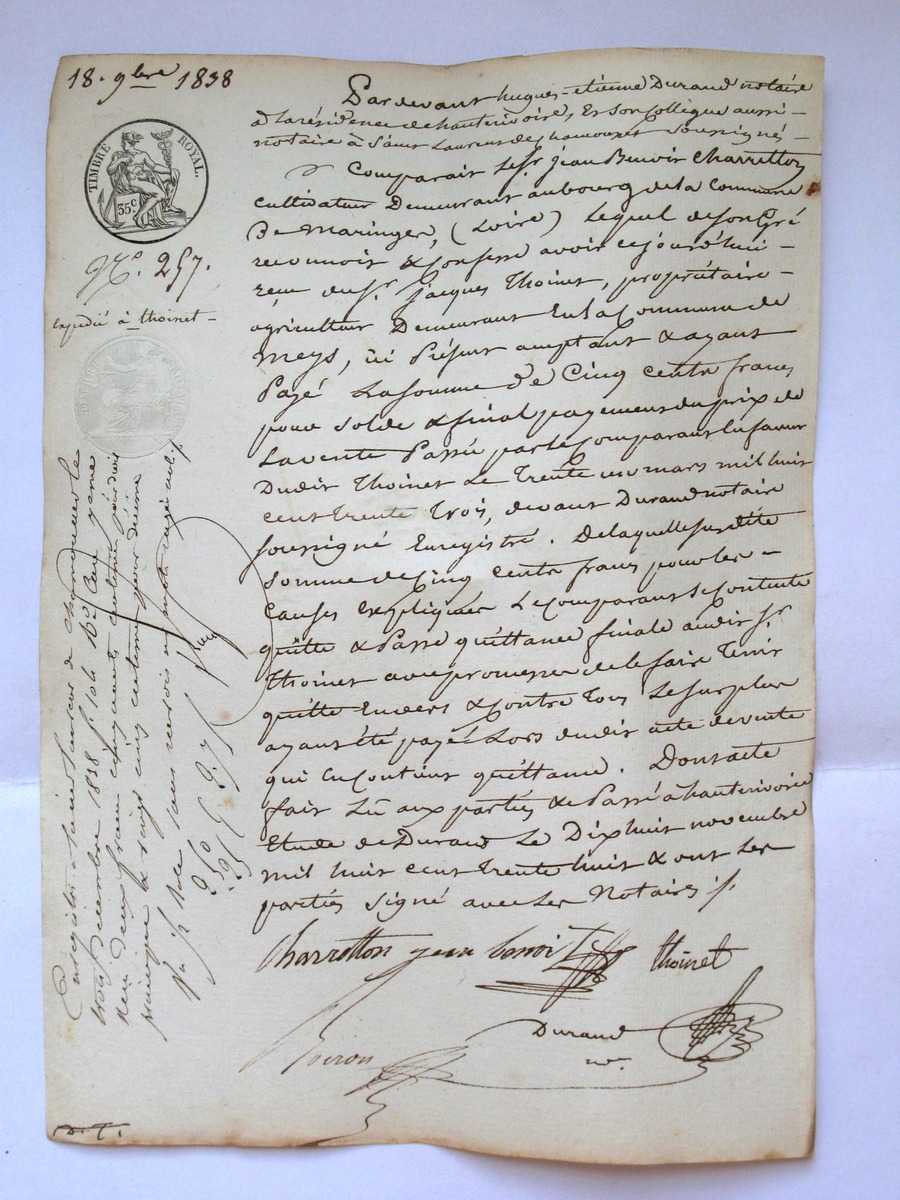 18. 9bre 1838
TIMBRE ROYAL.
35c
No. 257.
Expédié à thoinet
Pardevant hugues-etienne Durand notaire
à la résidence de hauterivoire, Et son Collègue aussi
notaire à Saint Laurent de chamousset Soussignés
Comparait le Sr. jean Benoit Charretton
Cultivateur Demeurant au bourg de la Commune
De Maringes, (Loire) Lequel de son Gré
reconnoit & Confesse avoir cejourd'hui
reçu du Sr. Jacques Thoinet, propriétaire
agriculteur Demeurant En la Commune de
Meys, ici Présent acceptant & ayant
Payé La Somme De Cinq cents francs
pour Solde & final payement du prix de
La vente Passée par le Comparant En faveur
Dudit Thoinet Le Trente un mars mil huit
cent trente Trois, devant Durand notaire
soussigné Enregistré. De laquelle susdite
somme de Cinq cents francs pour les
causes Expliquées Le Comparant Se Contente
quitte & Passe quittance finale audit Sr.
Thoinet avec promesse de le faire Tenir
quitte Envers & Contre Tous Le Surplus
ayant été payé Lors dudit acte de vente
qui En Contient quittance. Dont acte
fait Lû aux parties & Passé à hauterivoire
Etude de Durand Le Dix huit novembre
mil huit cent trente huit & ont Les
parties signé avec Les Notaires ./.
Charretton jean benoit thoinet
Durand
nre
Enregistré à Saint Laurent de chamousset le
trois Décembre 1838 fo. 104
Reçu deux francs cinquante centimes pour droit
principal & vingt cinq centimes pour decime